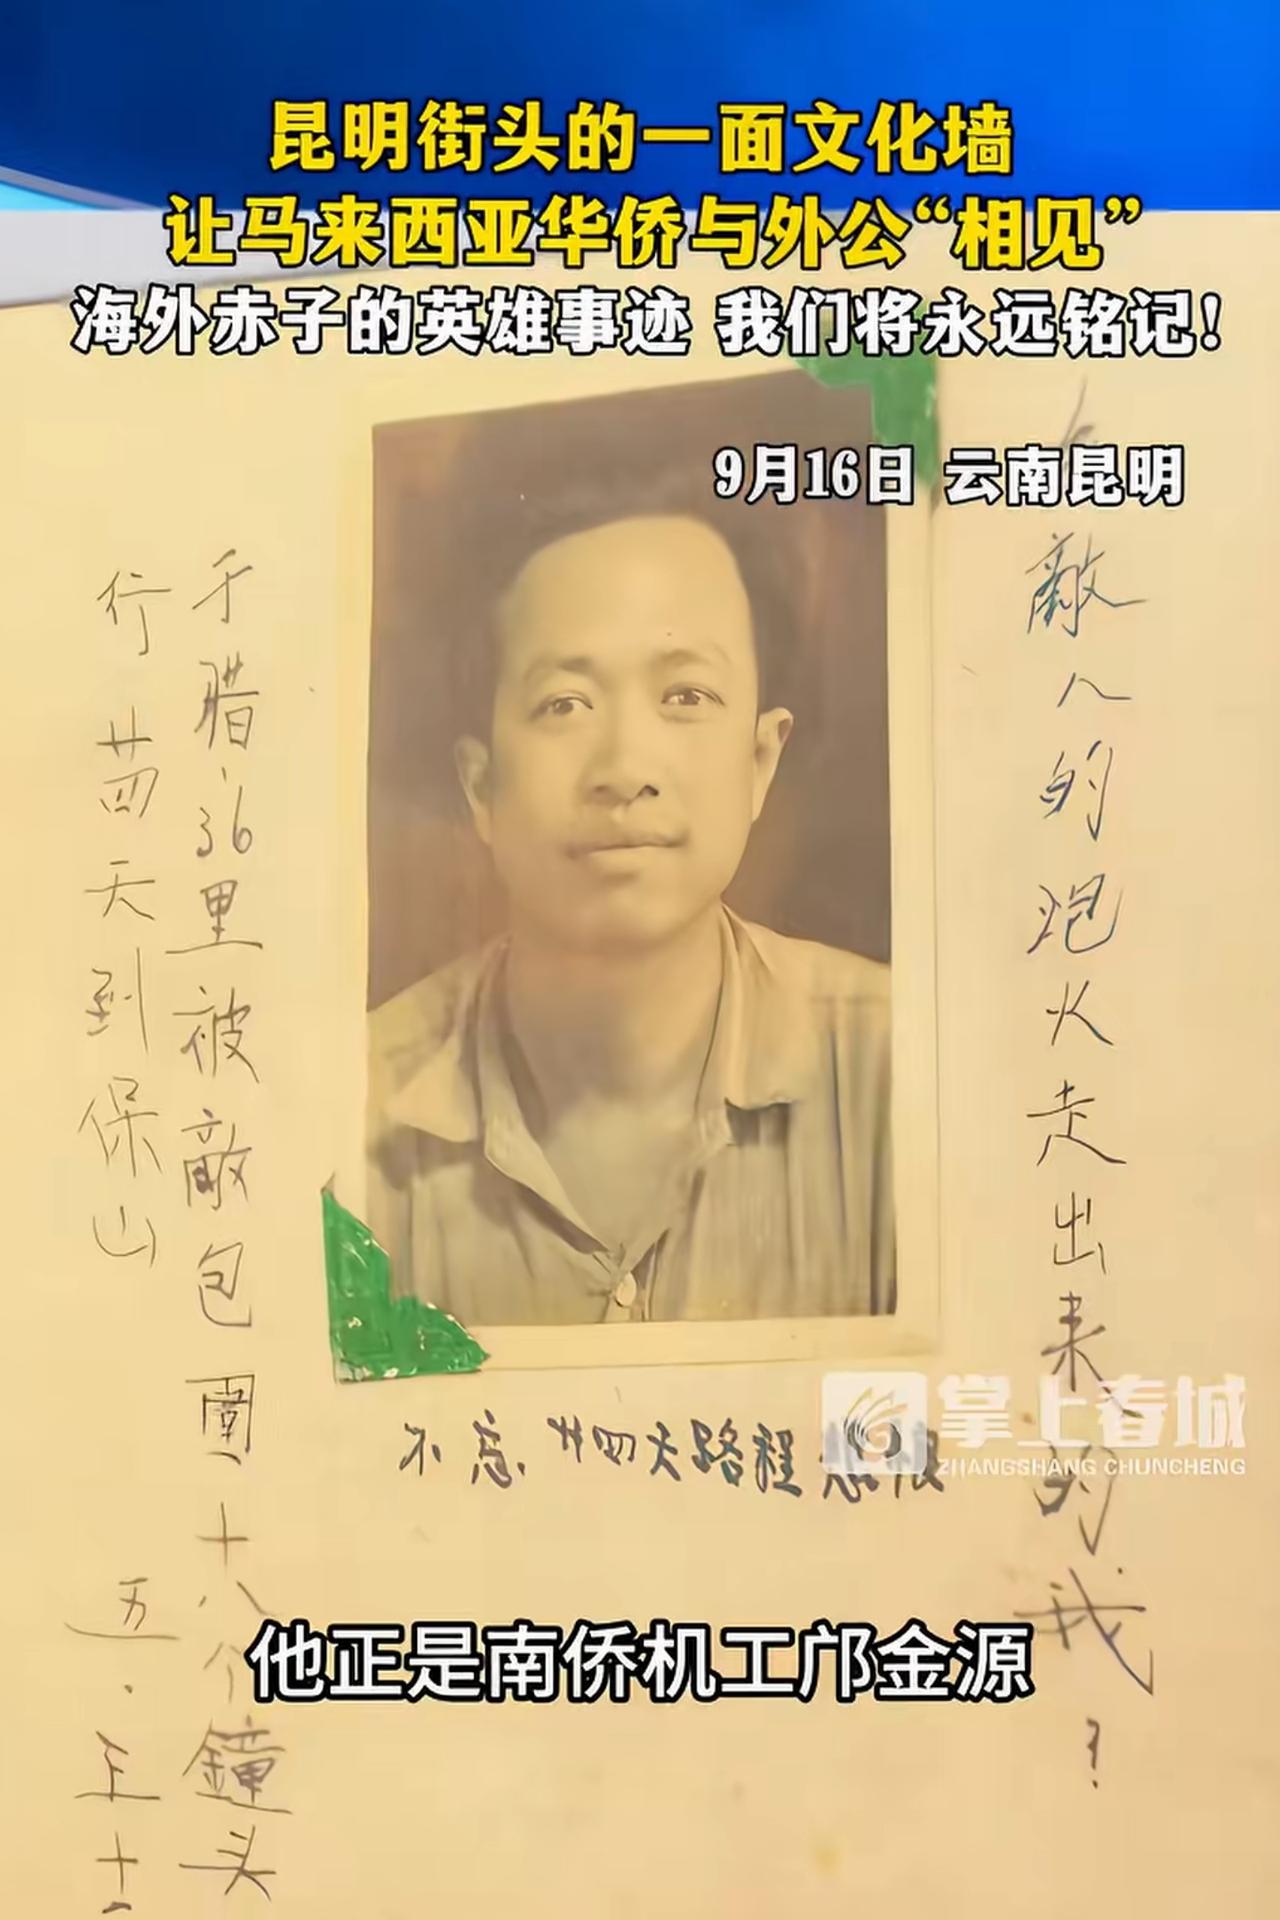 昆明街头的一面文化墙
让马来西亚华侨与外公“相见”
海外赤子的英雄事迹 我们将永远铭记！
9月16日 云南昆明
敵人的炮火走出来的我！
于腊.36里被敵包围十八个鐘头
行廿四天到保山
五.
不忘廿四天路程
掌上春城
ZHANGSHANG CHUNCHENG
他正是南侨机工邝金源